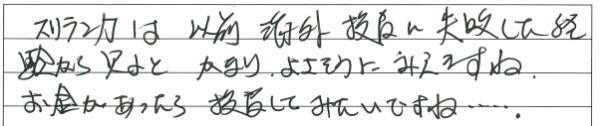 スリランカは 以前 海外 投資に 失敗した経
験から見ると かなり よさそうに みえますね.
お金があったら 投資して みたいですね…….